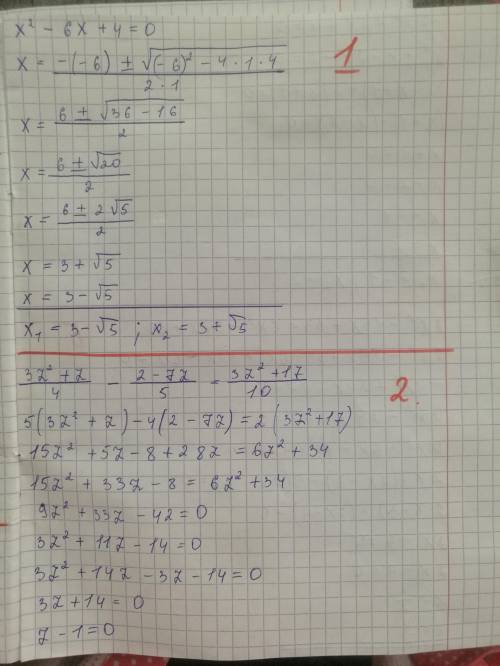 x² - 6x + 4 = 0
x = (-(-6) ± √((-6)² - 4 · 1 · 4)) / (2 · 1)
1
x = (6 ± √(36 - 16)) / 2
x = (6 ± √20) / 2
x = (6 ± 2√5) / 2
x = 3 + √5
x = 3 - √5
x₁ = 3 - √5 ; x₂ = 3 + √5
(3z² + z) / 4 - (2 - 7z) / 5 = (3z² + 17) / 10
2.
5(3z² + z) - 4(2 - 7z) = 2(3z² + 17)
15z² + 5z - 8 + 28z = 6z² + 34
15z² + 33z - 8 = 6z² + 34
9z² + 33z - 42 = 0
3z² + 11z - 14 = 0
3z² + 14z - 3z - 14 = 0
3z + 14 = 0
z - 1 = 0